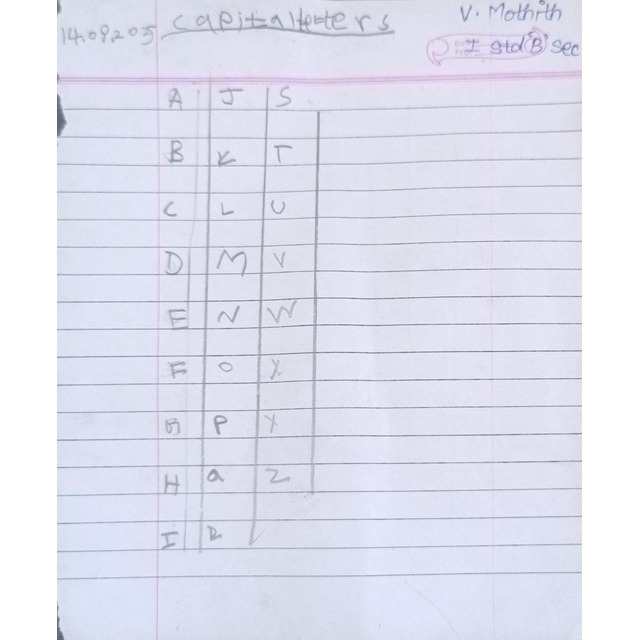 14.09.205 Capitalleters V. Mothith
I std 'B' sec
A J S
B K T
C L U
D M V
E N W
F O X
G P Y
H Q Z
I R